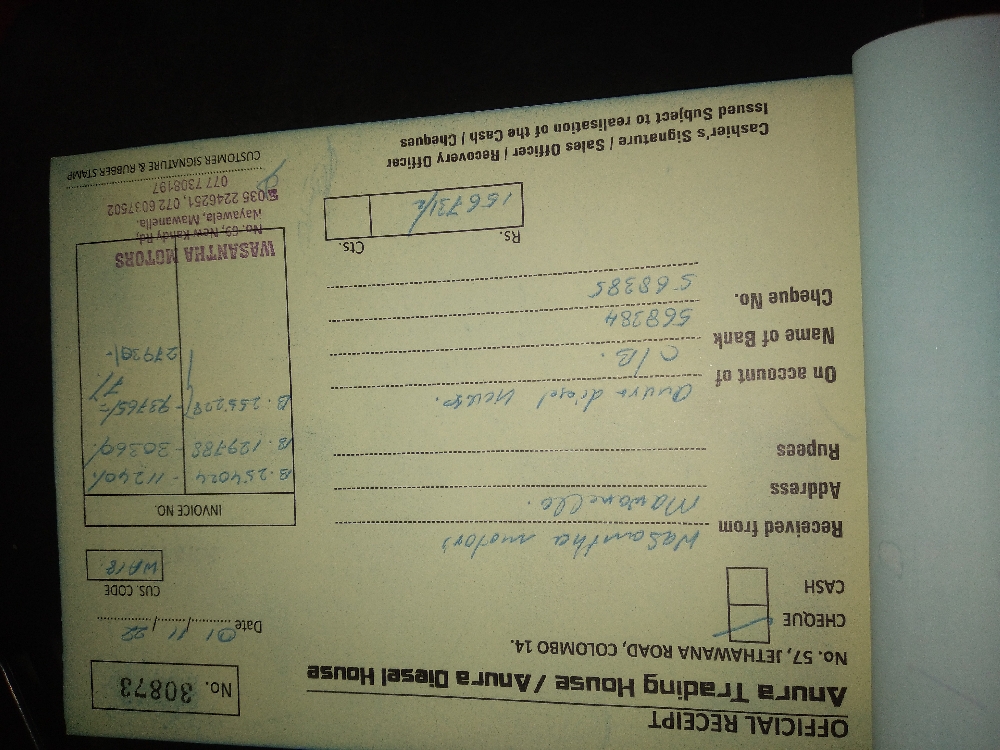 OFFICIAL RECEIPT
Anura Trading House / Anura Diesel House
No. 57, JETHAWANA ROAD, COLOMBO 14.
No. 30873
CHEQUE
CASH
Date 01/11/22
CUS. CODE
WA18
Received from Wasantha motors
Address Mawanella.
Rupees
On account of Anura diesel House.
Name of Bank C/B.
Cheque No. 568384
568385
INVOICE NO.
B.254024 - 11240/.
B.129788 - 30360/.
B.255228 - 93765/=
27930/-
Rs. Cts.
156731/2
WASANTHA MOTORS
No. 69, New Kandy Rd,
Wayawela, Mawanella.
035 2246251, 072 6037502
077 7308197
CUSTOMER SIGNATURE & RUBBER STAMP
Cashier's Signature / Sales Officer / Recovery Officar
Issued Subject to realisation of the Cash / Cheques